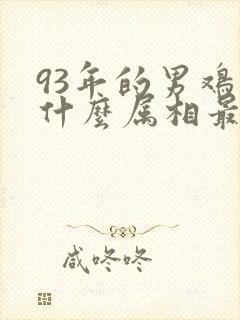 93年的男鸡
什麼属相最
咸咚咚